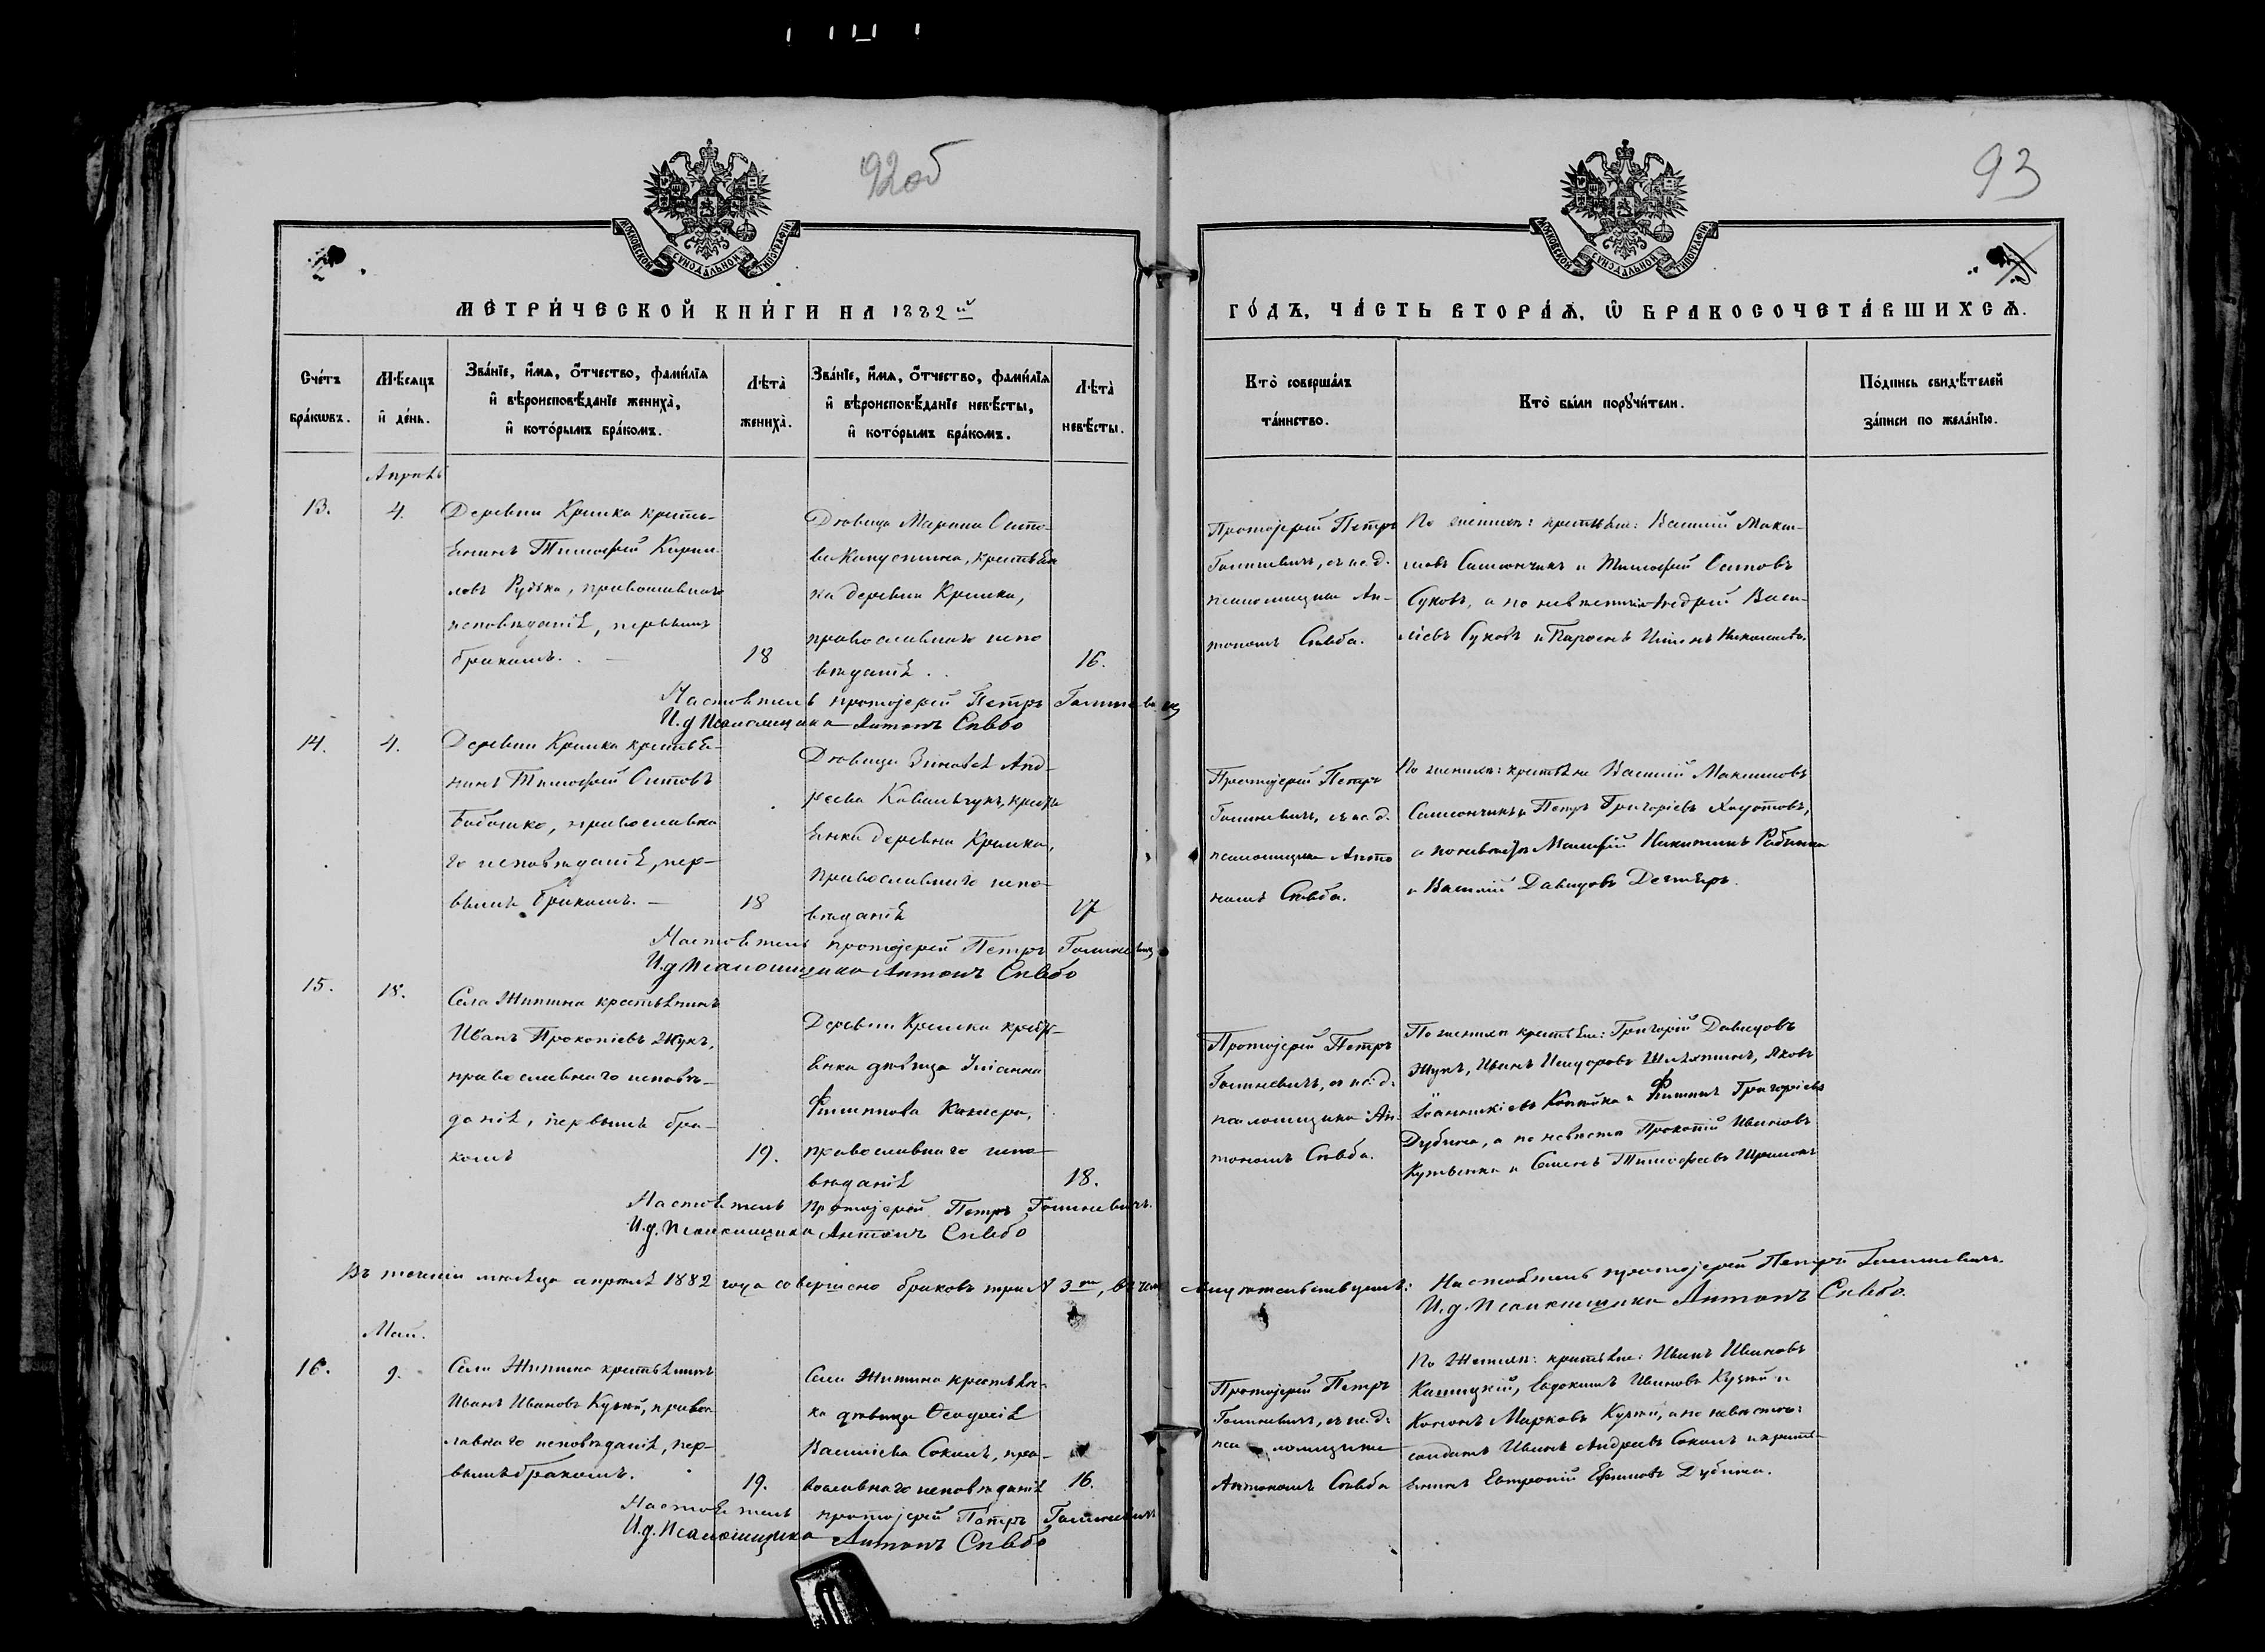 92об
93
МОСКОВСКОЙ СѴНОДАЛЬНОЙ ТИПОГРАФІИ
МОСКОВСКОЙ СѴНОДАЛЬНОЙ ТИПОГРАФІИ
МЕТРИ́ЧЕСКОЙ КНИ́ГИ НА 1882 й
ГО́ДЪ, ЧА́СТЬ ВТОРА́Ѧ, Ѡ БРАКОСОЧЕТА́ВШИХСѦ.
Сче́тъ бра́кѡвъ.
Мѣсяцъ и де́нь.
Зва́нїе, и́мѧ, о́тчество, фами́лїѧ и вѣроисповѣ́данїе жениха̀, и кото́рымъ бра́комъ.
Лѣта̀ жениха̀.
Зва́нїе, и́мѧ, о́тчество, фами́лїѧ и вѣроисповѣ́данїе невѣ́сты, и кото́рымъ бра́комъ.
Лѣта̀ невѣ́сты.
Кто̀ соверша́лъ та́инство.
Кто̀ бы́ли порꙋчи́тели.
По́дпись свидѣ́телей за́писи по жела́нїю.
Апрѣль
13.
4.
Деревни Кривка крестья-
янинъ Тимофей Кирил-
ловъ Рудько, православнаго
исповѣданія, первымъ
бракомъ.
18
Дѣвица Марина Осипо-
ва Капустина, крестьян
ка деревни Кривка,
православнаго испо
вѣданія..
16.
Протоіерей Петръ
Голиневичъ, съ ис. д.
псаломщика Ан-
тономъ Сльбо.
По женихѣ: крестьяне: Василій Макси-
мовъ Самончикъ и Тимофей Осиповъ
Суковъ, а по невѣстѣ Андрей Васи-
ліевъ Суковъ и Парфенъ
Настоятель протоіерей Петръ Голиневичъ
И.д. Псаломщика Антонъ Сльбо
14.
4.
Деревни Кривка крестья-
нинъ Тимофей Осиповъ
Бабашко, православна
го исповѣданія, пер-
вымъ бракомъ. —
18
Дѣвица Зиновія Анд-
реева Ковальчукъ, кресть
янка деревни Кривка,
православнаго испо-
вѣданія
17
Протоіерей Петръ
Голиневичъ, съ ис. д.
псаломщика Анто
номъ Сльбо.
По женихѣ: крестьяне Василій Максимовъ
Самончикъ, Петръ Григоріевъ
а по невѣстѣ Никитинъ
и Василій Давидовъ Дегтяръ.
Настоятель протоіерей Петръ Голиневичъ
И.д. Псаломщика Антонъ Сльбо
15.
18.
Села Житина крестьянинъ
Иванъ Прокопіевъ Жукъ,
православнаго исповѣ-
данія, первымъ бра-
комъ
19.
Деревни Кривка кресть-
янка дѣвица Уліанна
Филиппова
православнаго испо-
вѣданія
18.
Протоіерей Петръ
Голиневичъ, съ ис. д.
псаломщика Ан-
тономъ Сльбо.
По женихѣ крестьяне: Григорій Давидовъ
Жукъ, Иванъ Исидоровъ Яковъ
и Филиппъ Григоріевъ
Дубина, а по невѣстѣ Прокопій Ивановъ
и Семенъ Тимофеевъ
Настоятель протоіерей Петръ Голиневичъ.
И.д. Псаломщика Антонъ Сльбо
Въ теченіи мѣсяца апрѣля 1882 года совершено браковъ три № 3, въ чемъ и свидѣтельствуемъ: Настоятель протоіерей Петръ Голиневичъ.
И.д. Псаломщика Антонъ Сльбо.
Май.
16.
9.
Села Житина крестьянинъ
Иванъ Ивановъ правос
лавнаго исповѣданія, пер-
вымъ бракомъ.
19.
Села Житина крестьян-
ка дѣвица Ѳеодосія
Василіева Соколъ, пра-
вославнаго исповѣданія
16.
Протоіерей Петръ
Голиневичъ, съ ис. д.
псаломщика
Антономъ Сльбо
По женихѣ: крестьяне: Иванъ Ивановъ
Евдокимъ Ивановъ и
Марковъ а по невѣстѣ:
солдатъ Иванъ Андреевъ Соколъ и кресть-
янинъ Евтропій Ефимовъ Дубина.
Настоятель протоіерей Петръ Голиневичъ
И.д. Псаломщика Антонъ Сльбо